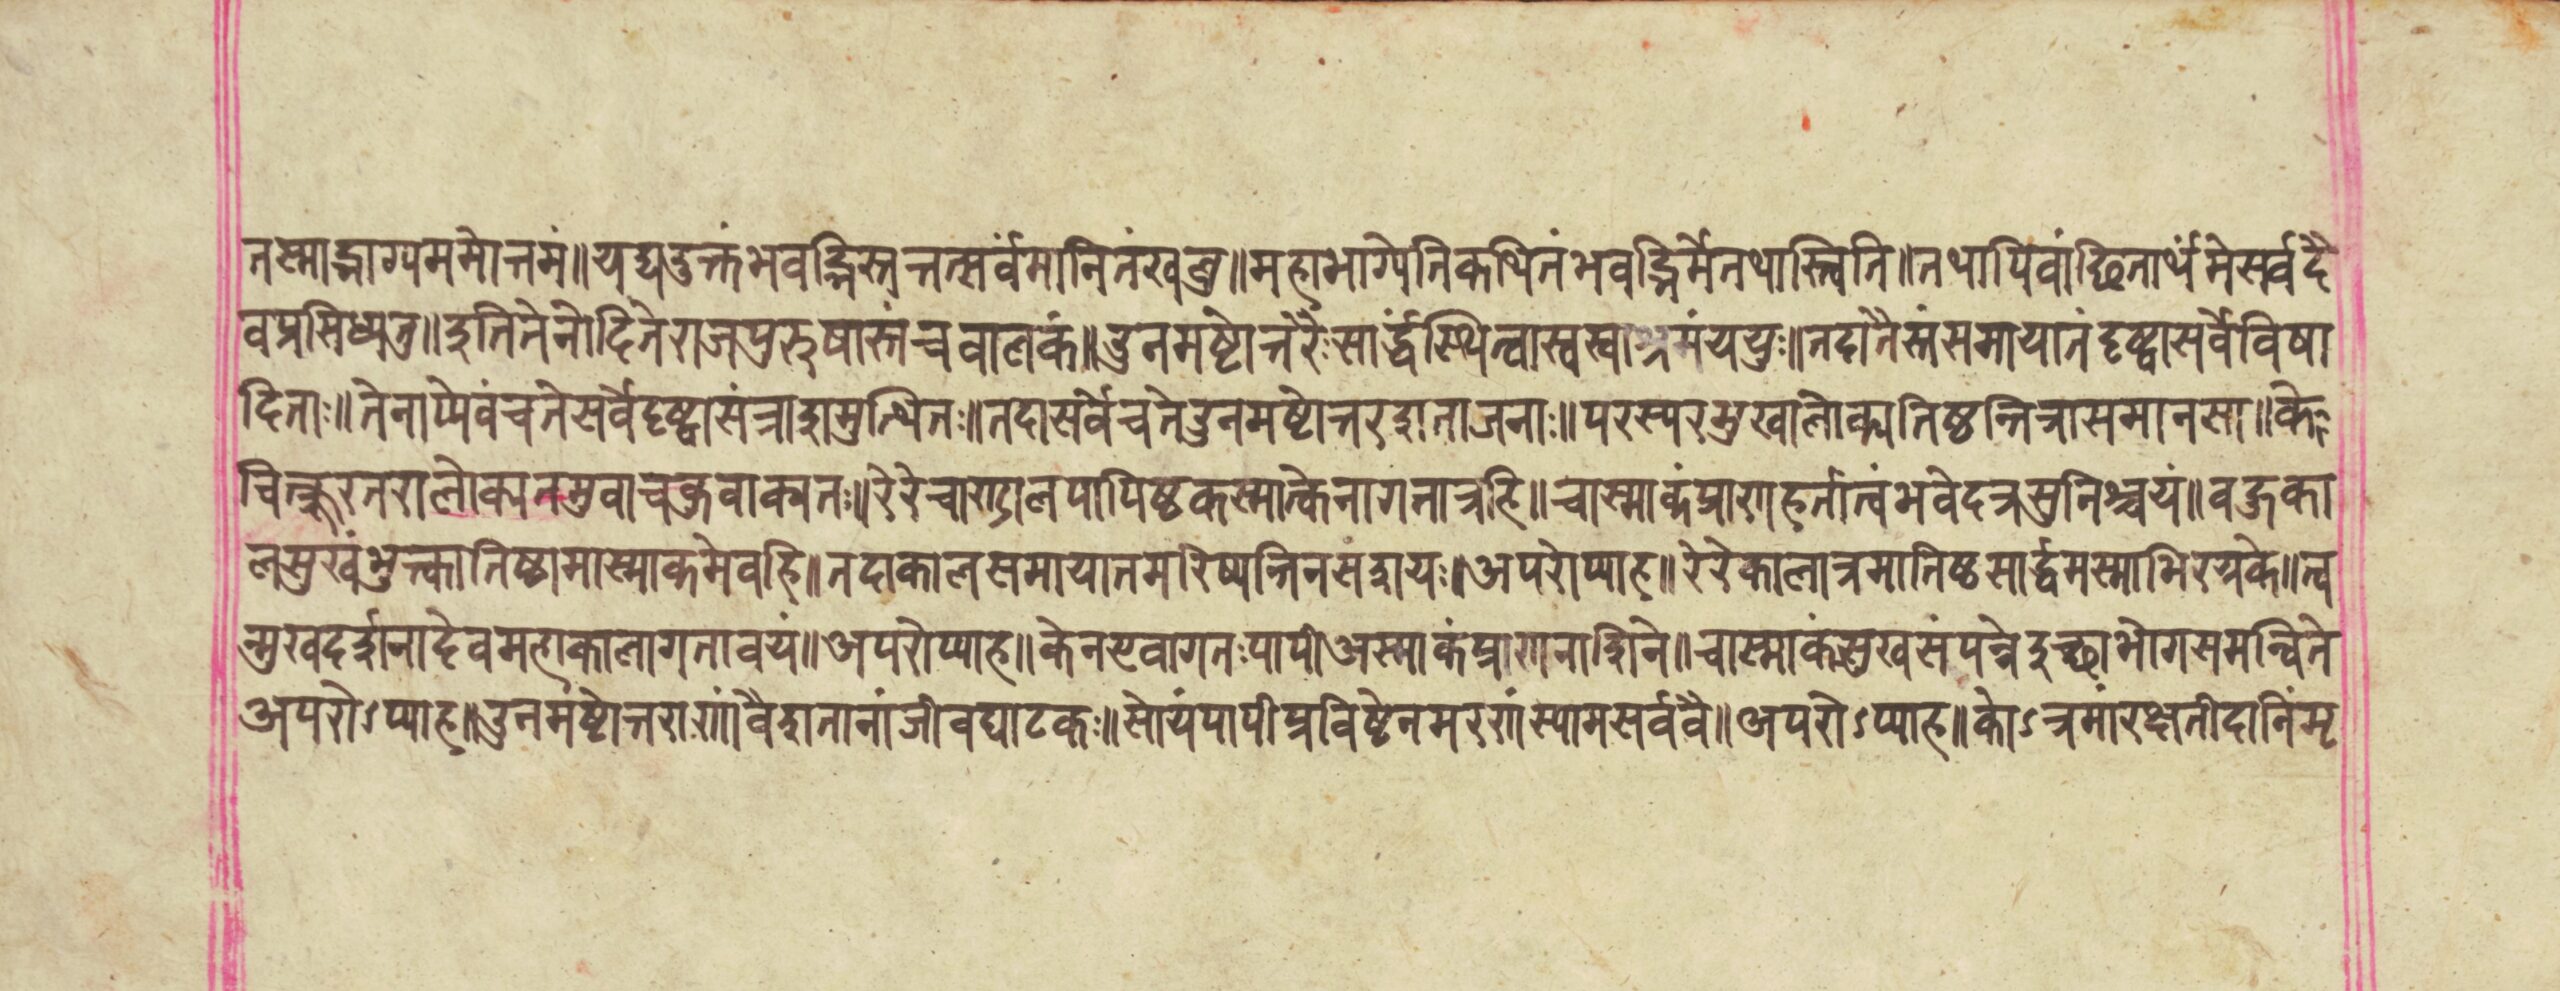 तस्माद्भाग्यममोत्तमं॥यद्यदुक्तंभवद्भिस्तत्तत्सर्वंमानितंखलु॥महाभाग्येतिकथितंभवद्भिर्मेतथास्त्विति॥तथापिवांछितार्थंमेसर्वदै
वप्रसिध्यतु॥इतितेनोदितेराजपुरुषास्तंचवालकं॥उनमष्टोत्तरैःसार्द्धंस्थित्वास्वस्वाश्रमंययुः॥तदातैस्तंसमायातंदृष्ट्वासर्वेविषा
दिताः॥तेनाप्येवंचतेसर्वेदृष्ट्वासंत्रादामुत्थितः॥तदासर्वेचतेउनमष्टोत्तरशताजनाः॥परस्परमुखालोक्यतिष्ठन्तित्रासमानसा॥के
चित्क्रूरतरालोक्यतमुवाचक्रुवाक्यतः॥रेरेचाण्डालपापिष्ठकस्मात्केनागतात्रहि॥चास्माकंप्राणहर्तात्वंभवेदत्रसुनिश्चयं॥वज्रका
लमुखंभुक्त्कातिष्ठामास्माकमेवहि॥तदाकालसमायातमरिष्यन्तिनसंशयः॥अपरोप्याह॥रेरेकालात्रमातिष्ठसार्द्धमस्माभिरत्रके॥त्व
न्मुखदर्शनादेवमहाकालागतावयं॥अपरोप्याह॥केनएवागतःपापीअस्माकंप्राणनाशिने॥चास्माकंसुखसंपन्नेइच्छाभोगसमन्विते
अपरोऽप्याह॥उनमष्टोत्तराणांवैशतानांजीवघाटकः॥सोयंपापीप्रविष्टेनमरणंस्यामसर्ववै॥अपरोऽप्याह॥कोऽत्रमांरक्षतीदानिंमृ